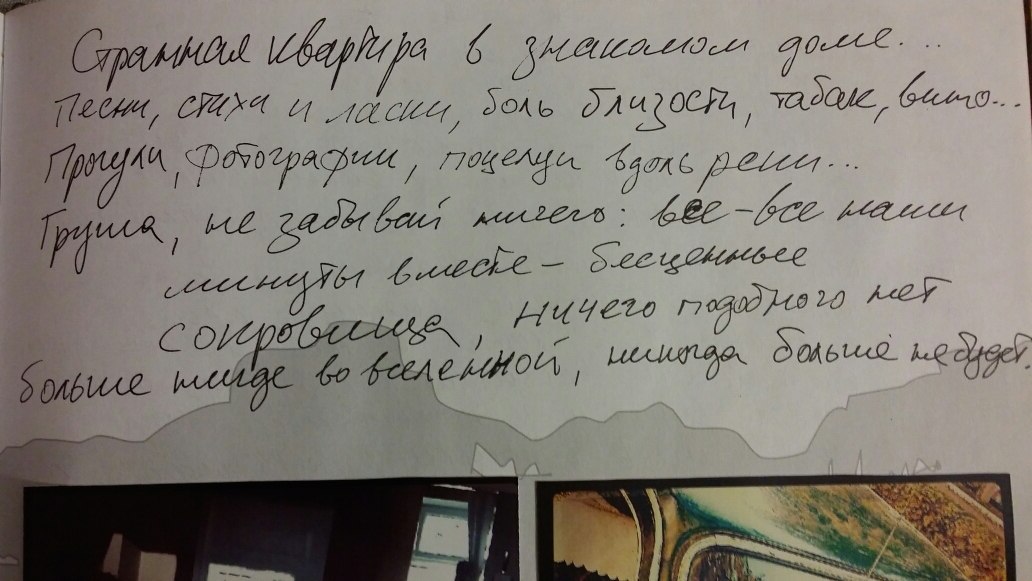 Странная квартира в знакомом доме...
Песни, стихи и ласки, боль близости, табак, вино...
Прогулки, фотографии, поцелуи вдоль реки...
Груша, не забывай ничего: все-все наши
минуты вместе - бесценные
сокровища, ничего подобного нет
больше нигде во вселенной, никогда больше не будет.